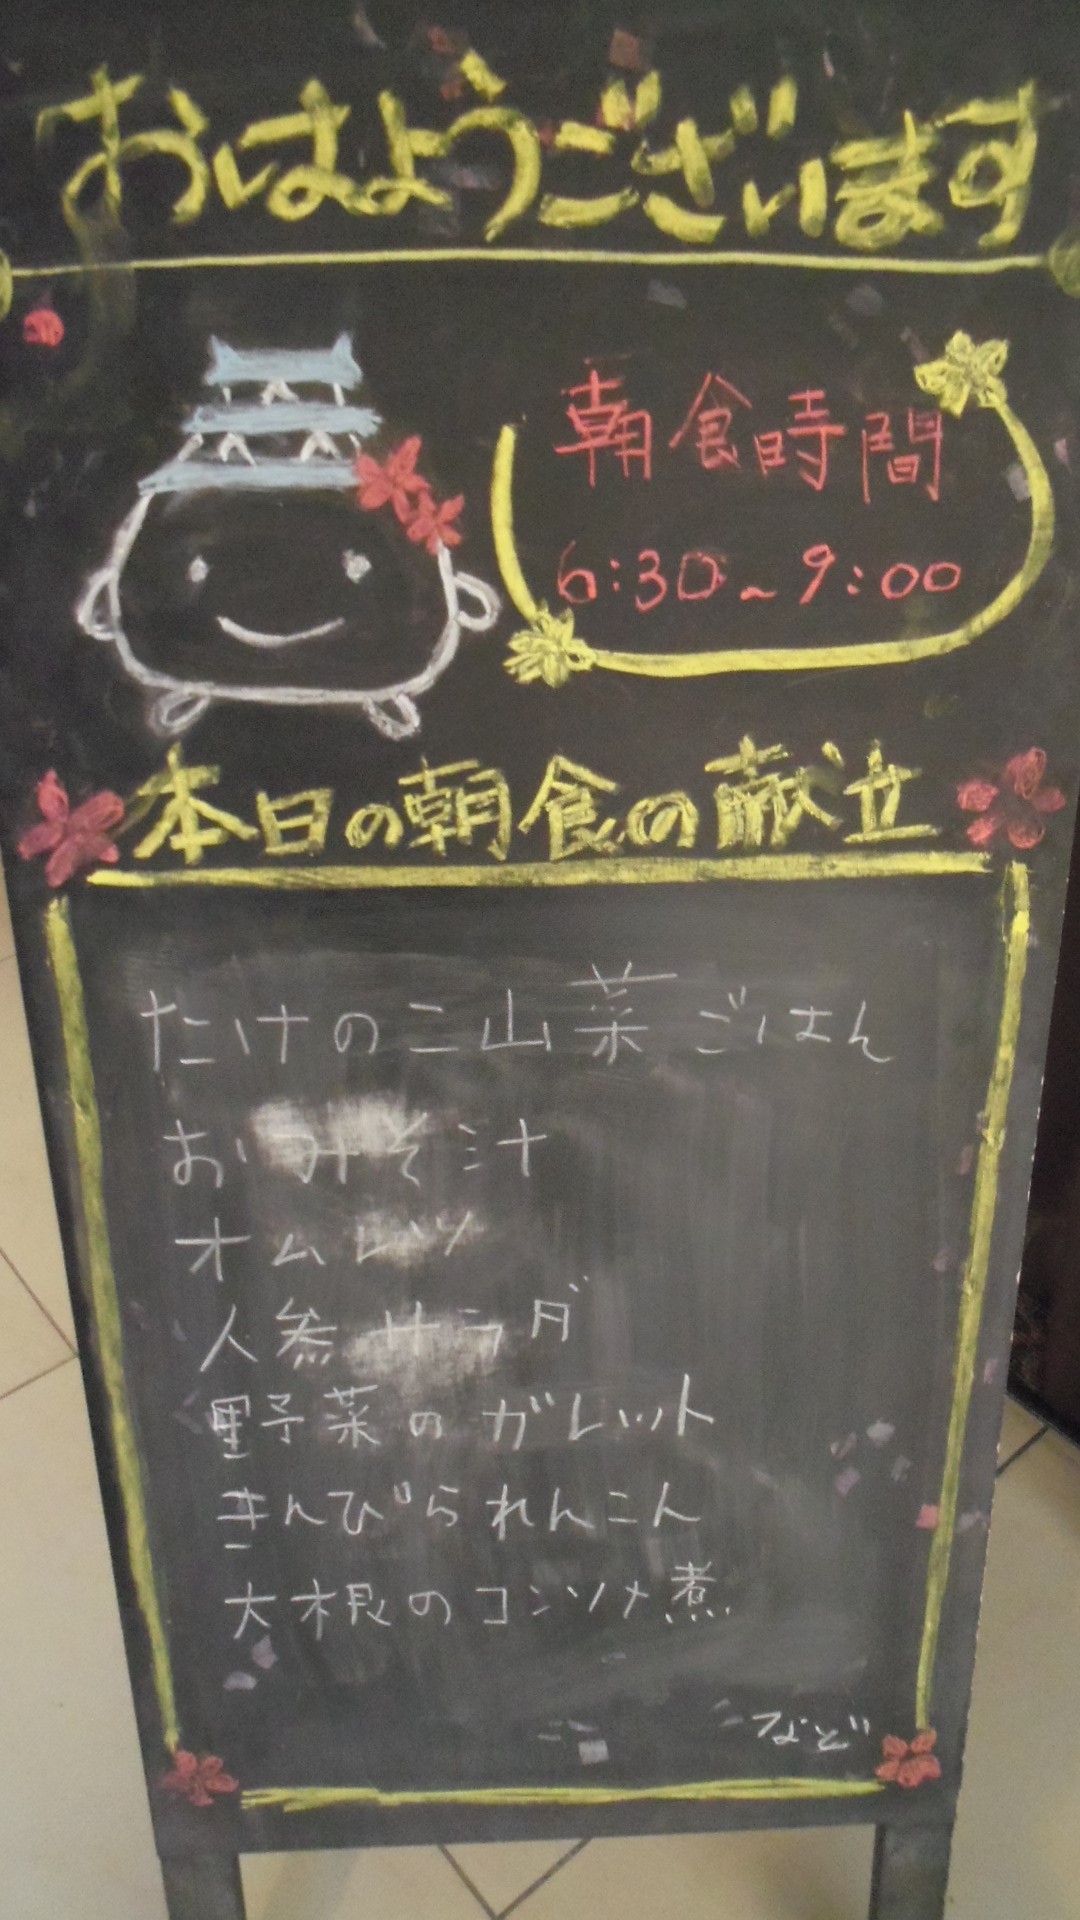 おはようございます
朝食時間
6:30~9:00
本日の朝食の献立
たけのこ山菜ごはん
おみそ汁
オムレツ
人参サラダ
野菜のガレット
きんぴられんこん
大根のコンソメ煮
など